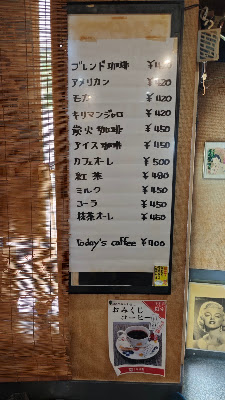 ブレンド珈琲 ¥400
アメリカン ¥420
モカ ¥420
キリマンジャロ ¥420
炭火珈琲 ¥450
アイス珈琲 ¥450
カフェオーレ ¥500
紅茶 ¥480
ミルク ¥450
コーラ ¥450
抹茶オーレ ¥450
today's coffee ¥400
おみくじ
コーヒー